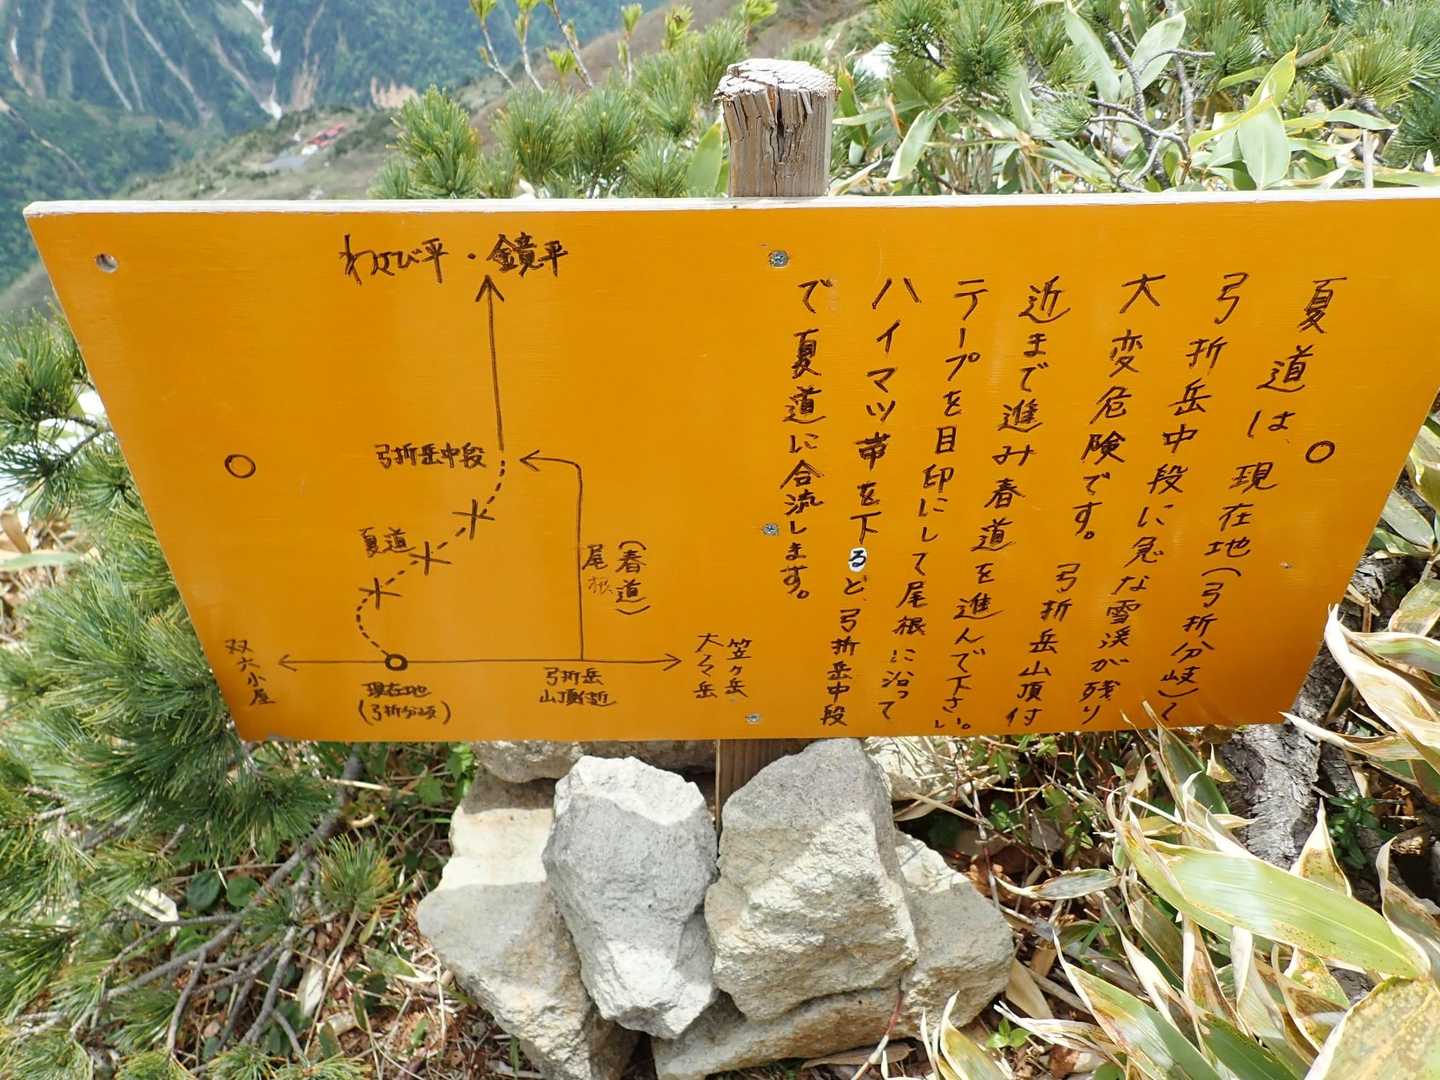 夏道は、現在地(弓折分岐)〜
弓折岳中段に急な雪渓が残り
大変危険です。弓折岳山頂付
近まで進み春道を進んで下さい。
テープを目印にして尾根に沿って
ハイマツ帯を下ると、弓折岳中段
で夏道に合流します。
わさび平・鏡平
弓折岳中段
夏道
(春道)
尾根
双六小屋
現在地
(弓折分岐)
弓折岳
山頂付近
笠ヶ岳
大ノマ岳